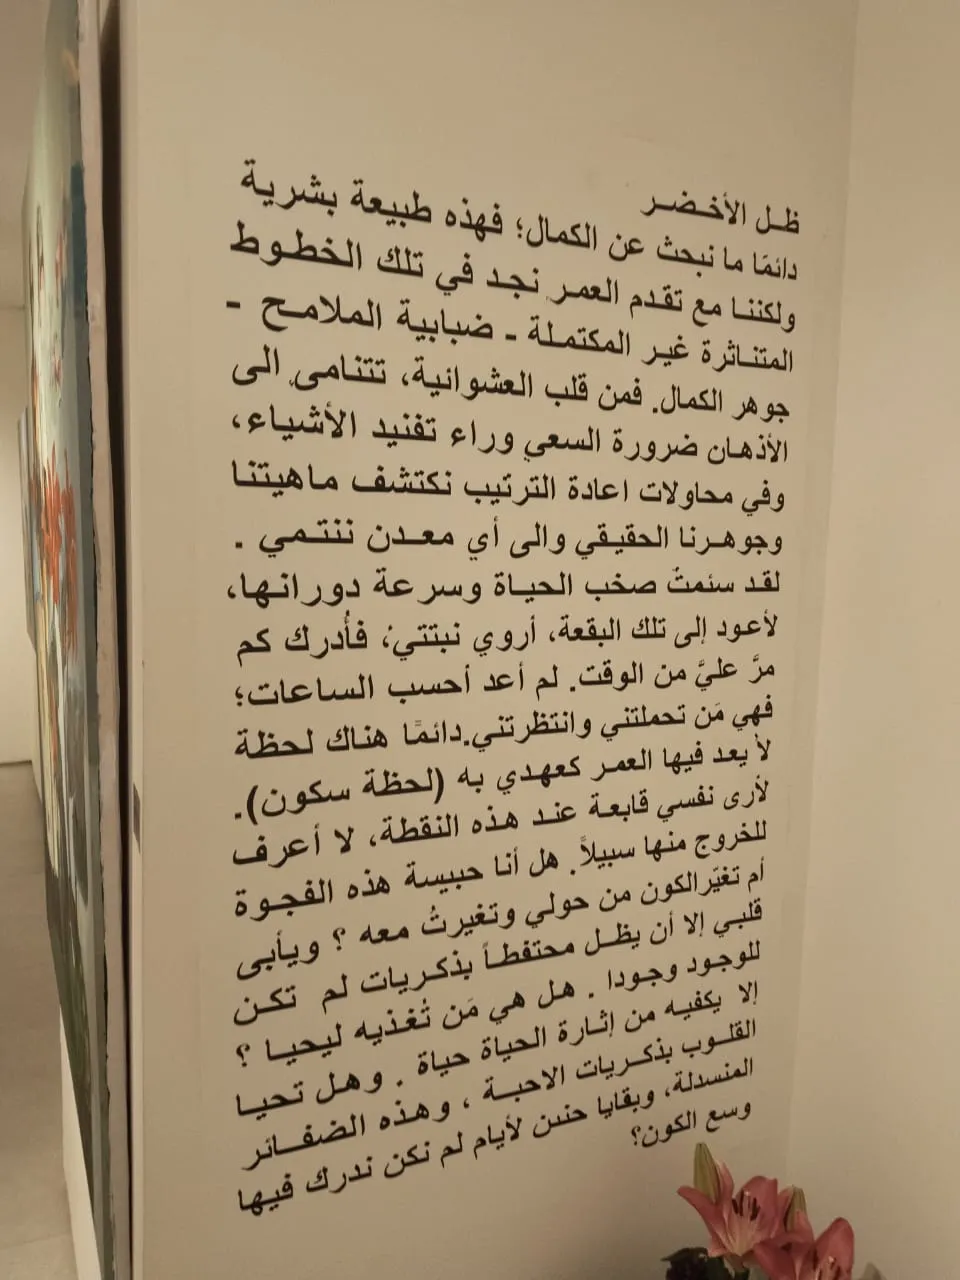 ظل الأخضر
دائمًا ما نبحث عن الكمال؛ فهذه طبيعة بشرية
ولكننا مع تقدم العمر نجد في تلك الخطوط
المتناثرة غير المكتملة - ضبابية الملامح -
جوهر الكمال. فمن قلب العشوائية، تتنامى الى
الأذهان ضرورة السعي وراء تفنيد الأشياء،
وفي محاولات اعادة الترتيب نكتشف ماهيتنا
وجوهرنا الحقيقي والى أي معدن ننتمي .
لقد سئمتُ صخب الحياة وسرعة دورانها،
لأعود إلى تلك البقعة، أروي نبتتي؛ فأُدرك كم
مرَّ عليَّ من الوقت. لم أعد أحسب الساعات؛
فهي مَن تحملتني وانتظرتني.دائمًا هناك لحظة
لا يعد فيها العمر كعهدي به (لحظة سكون).
لأرى نفسي قابعة عند هذه النقطة، لا أعرف
للخروج منها سبيلاً. هل أنا حبيسة هذه الفجوة
أم تغيّرالكون من حولي وتغيرتُ معه ؟ ويأبى
قلبي إلا أن يظل محتفطاً بذكريات لم تكن
للوجود وجودا . هل هي مَن تُغذيه ليحيا ؟
إلا يكفيه من إثارة الحياة حياة . وهل تحيا
القلوب بذكريات الاحبة ، وهذه الضفائر
المنسدلة، وبقايا حنين لأيام لم نكن ندرك فيها
وسع الكون؟